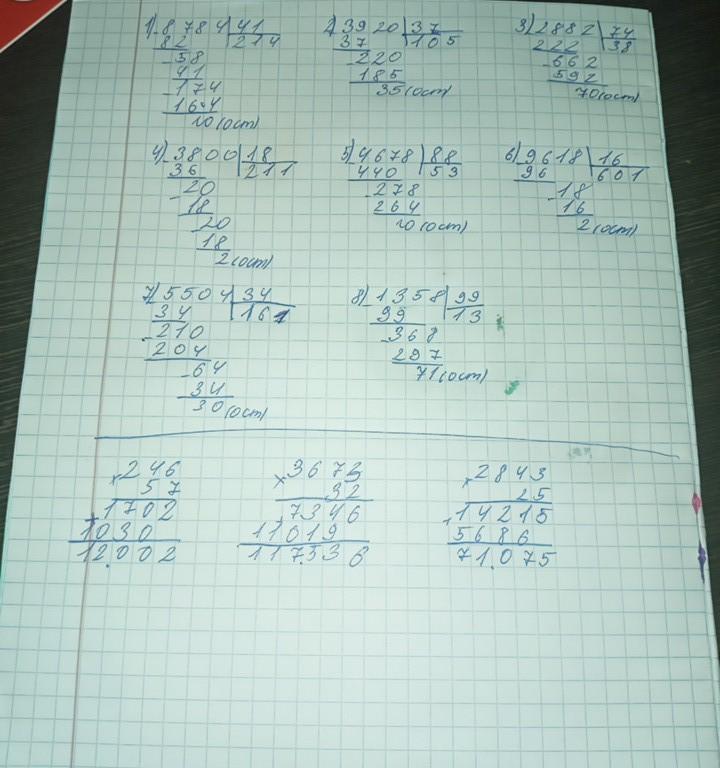 1) 8784 41
82 214
58
41
174
164
20 (ост)
2) 3920 37
37 105
220
185
35 (ост)
3) 2882 74
222 38
662
592
70 (ост)
4) 3800 18
36 211
20
18
20
18
2 (ост)
5) 4678 88
440 53
278
264
20 (ост)
6) 9618 16
96 601
18
16
2 (ост)
7) 5504 34
34 161
210
204
64
34
30 (ост)
8) 1358 99
99 13
368
297
71 (ост)
246
× 57
1702
+ 1030
12.002
3673
× 32
7346
11019
117536
2843
× 25
+ 14215
5686
71.075